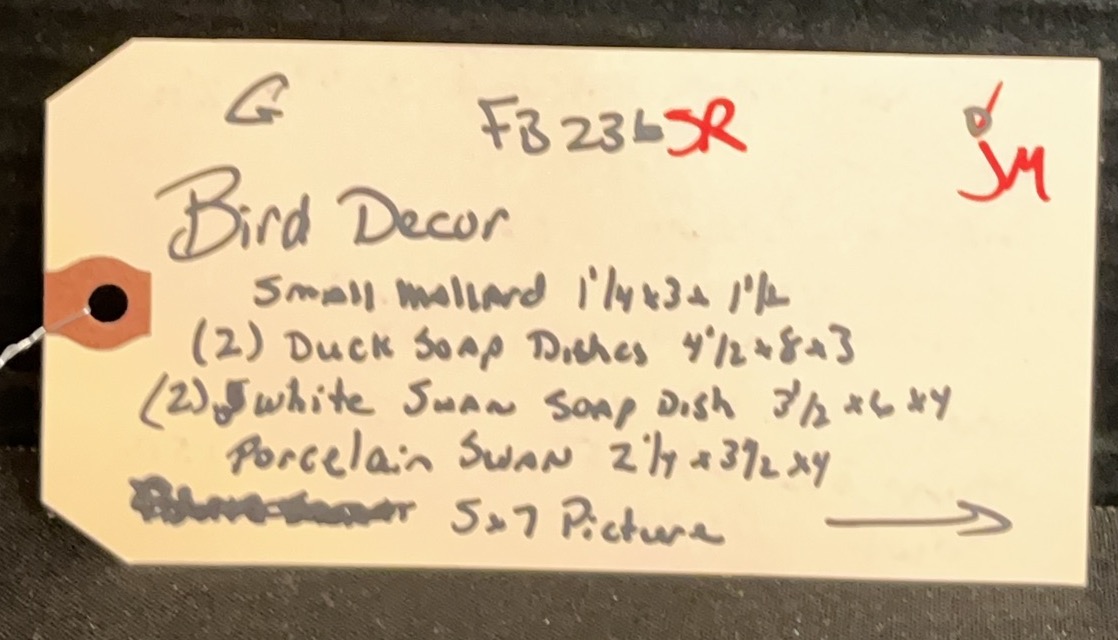 G FB236 SR JM
Bird Decor
Small Mallard 1 1/4 x 3 x 1 1/2
(2) Duck Soap Dishes 4 1/2 x 8 x 3
(2) white Swan Soap Dish 3 1/2 x 6 x 4
Porcelain Swan 2 1/4 x 3 1/2 x 4
5x7 Picture →